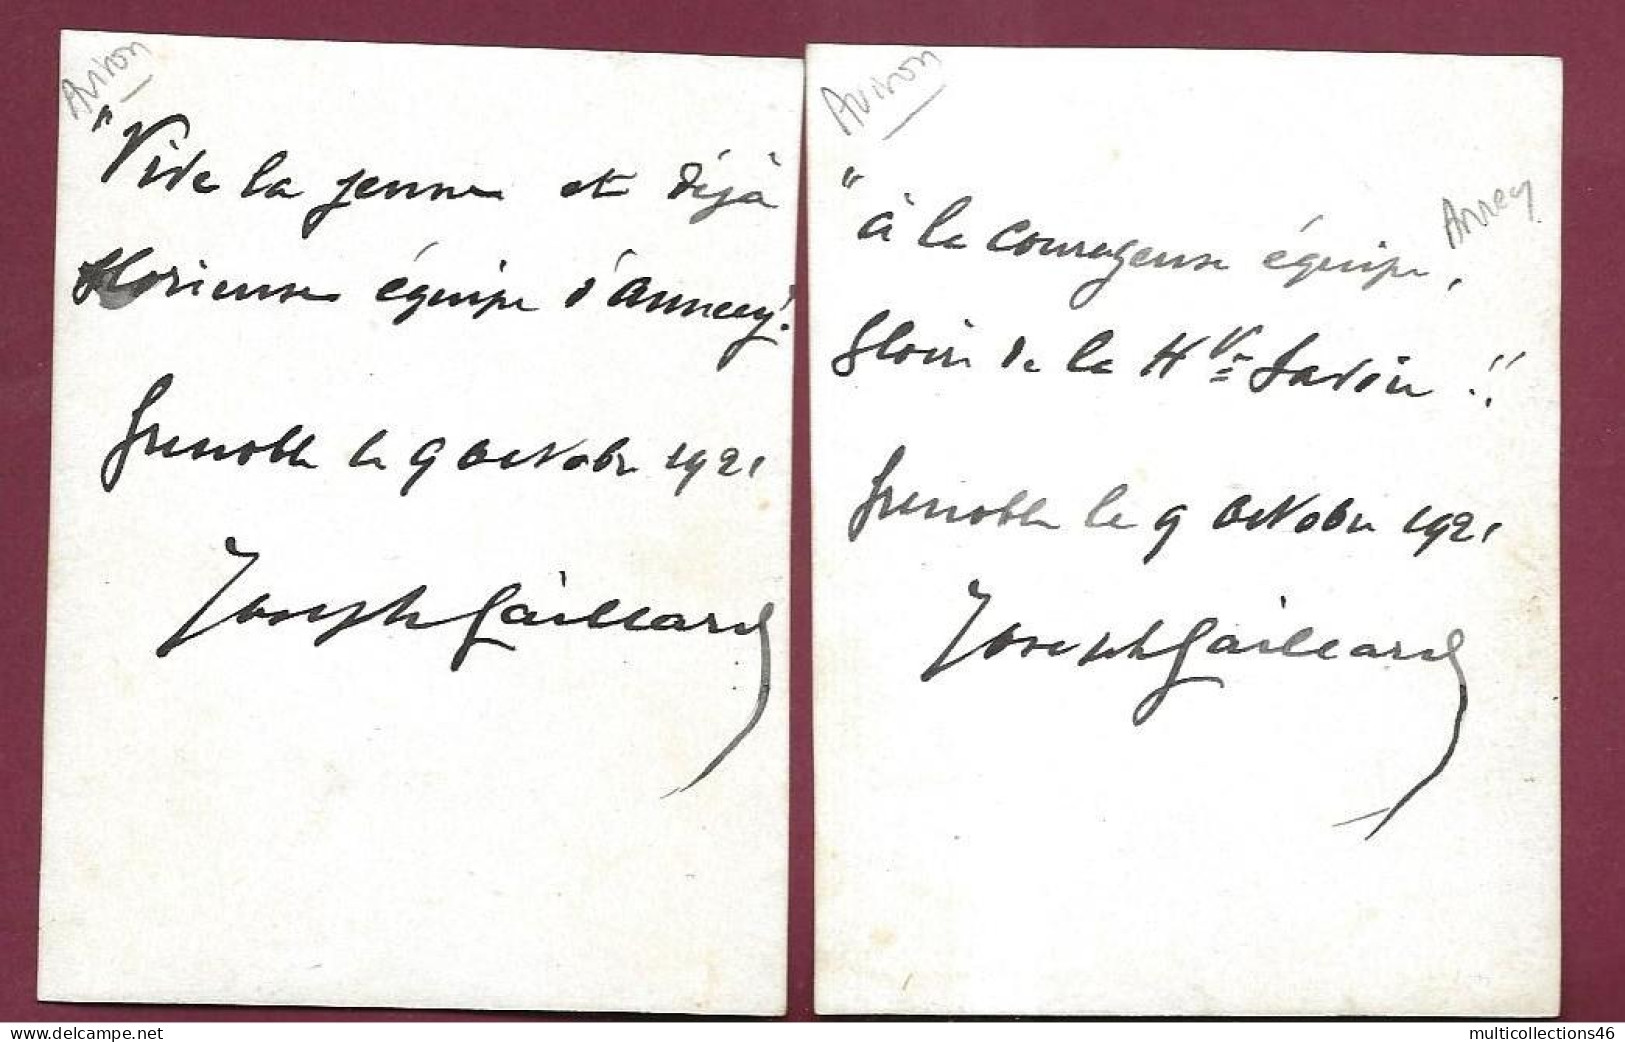 Aviron
"Vive la jeune et déjà
glorieuse équipe d'Annecy!
Grenoble le 9 octobre 1921
Joseph Gaillard
Aviron
"à la courageuse équipe,
Annecy
gloire de la Hte Savoie !!
Grenoble le 9 octobre 1921
Joseph Gaillard
delcampe.net
multicollections46